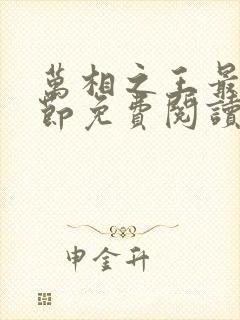 萬相之王最
節免費閱讀
申金升